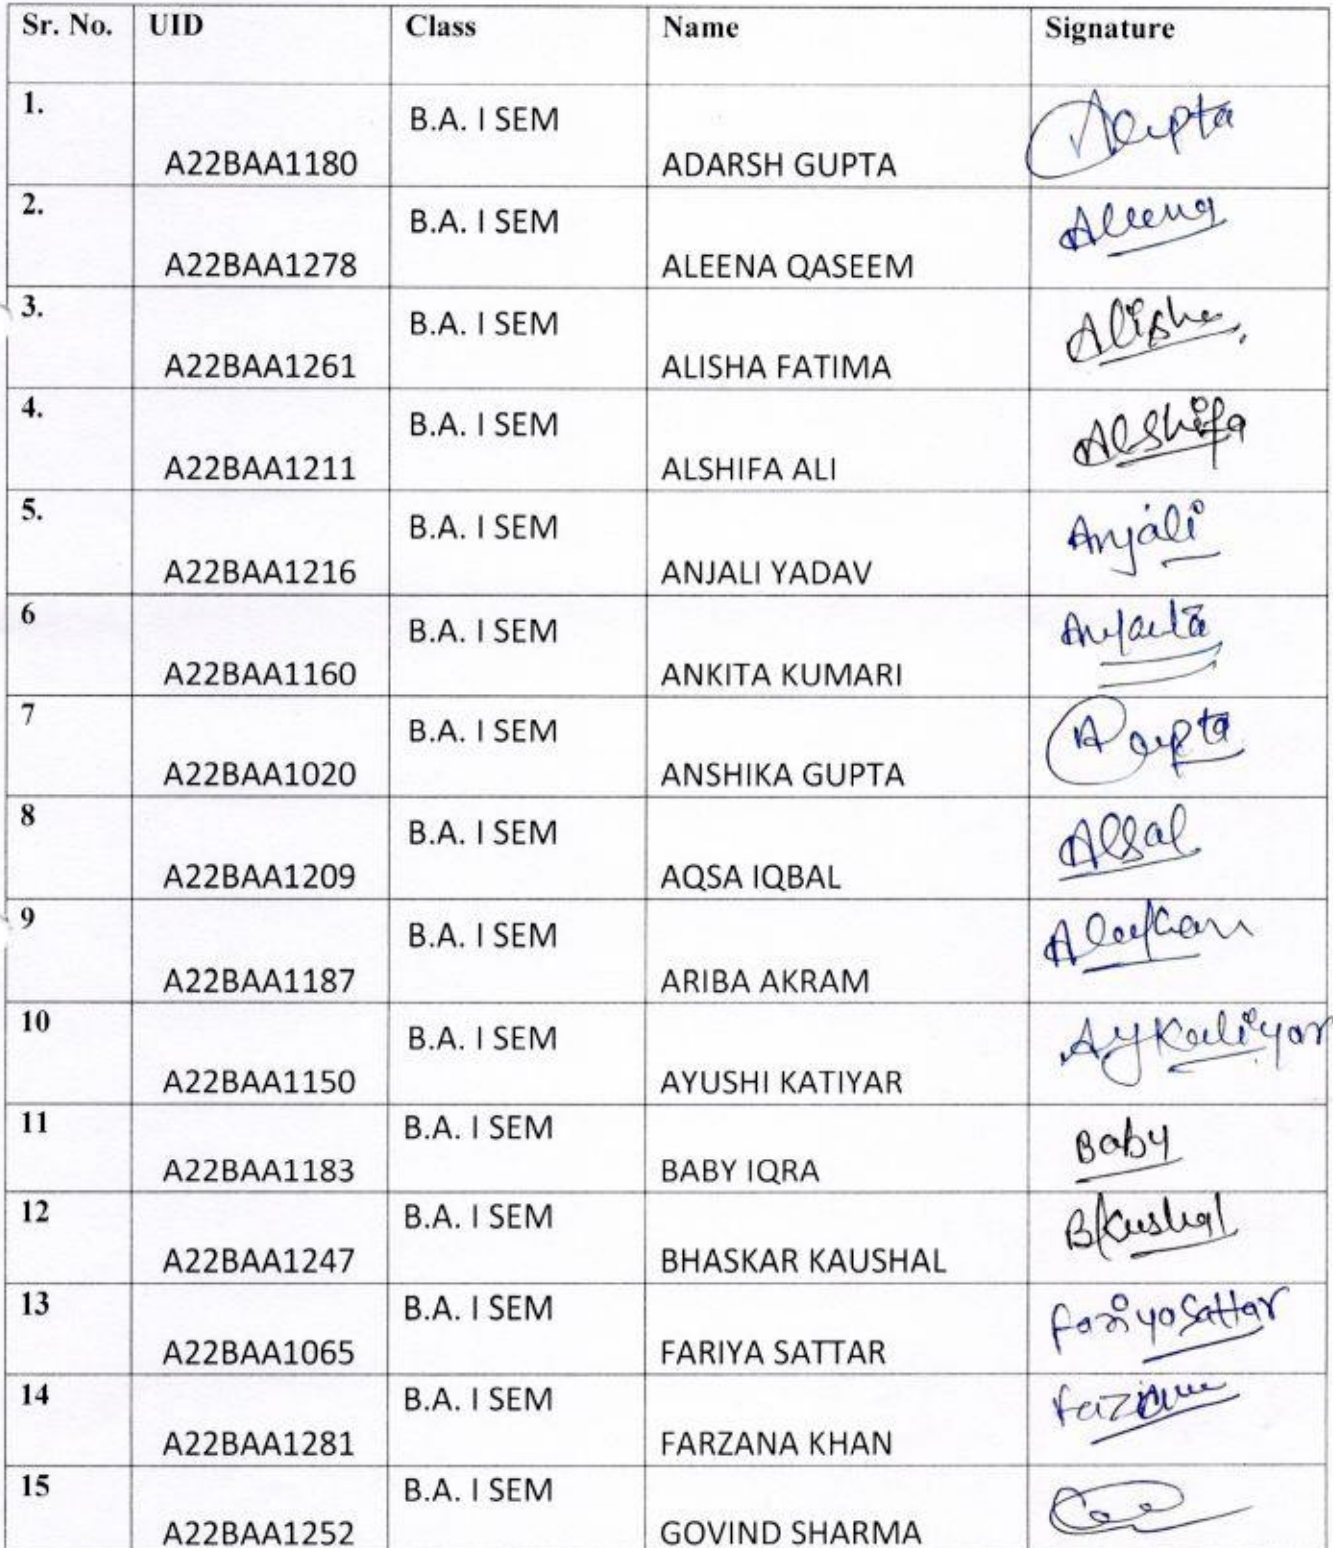 Sr. No. UID Class Name Signature
1. A22BAA1180 B.A. I SEM ADARSH GUPTA AGupta
2. A22BAA1278 B.A. I SEM ALEENA QASEEM Aleena
3. A22BAA1261 B.A. I SEM ALISHA FATIMA Alisha
4. A22BAA1211 B.A. I SEM ALSHIFA ALI Alshifa
5. A22BAA1216 B.A. I SEM ANJALI YADAV Anjali
6 A22BAA1160 B.A. I SEM ANKITA KUMARI
7 A22BAA1020 B.A. I SEM ANSHIKA GUPTA AGupta
8 A22BAA1209 B.A. I SEM AQSA IQBAL
9 A22BAA1187 B.A. I SEM ARIBA AKRAM
10 A22BAA1150 B.A. I SEM AYUSHI KATIYAR
11 A22BAA1183 B.A. I SEM BABY IQRA Baby
12 A22BAA1247 B.A. I SEM BHASKAR KAUSHAL BKaushal
13 A22BAA1065 B.A. I SEM FARIYA SATTAR Fariya Sattar
14 A22BAA1281 B.A. I SEM FARZANA KHAN
15 A22BAA1252 B.A. I SEM GOVIND SHARMA